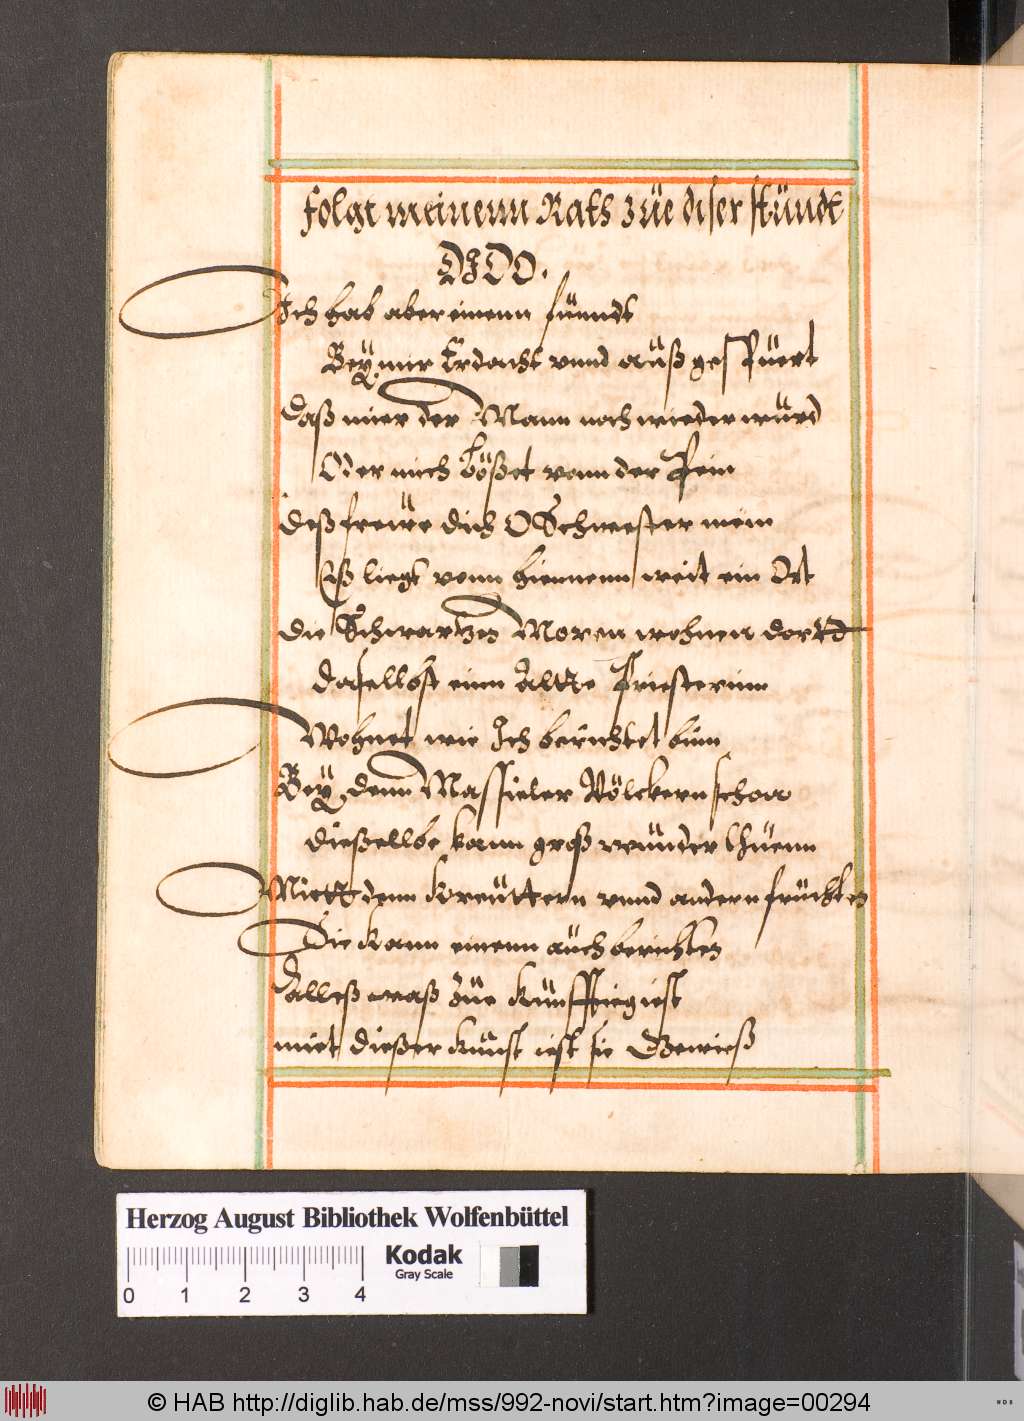 folgt meinenn Rath züe diser stündt
DIDO.
Ich hab aber einenn fünndt
Beÿ mir Erdacht vnnd aüß gespüert
Daß mier der Mann noch wieder würd
Oder mich lößet vonn der Pein
deß freiüe dich O Schwester mein
Eß liegt vonn hiennenn weit ein Ort
die Schwartzen Moren wohnen dortt
daselbst einn Altte Priesterinn
Wohnet wie Ich berichtet binn
Beÿ denn Massieler Völckern schaar
dießellbe kann groß wünder thüenn
Miett denn Kreüttern vnnd andern früchten
Die kann einenn aüch berichten
Alleß waß züe künfftieg iest
miet dießer künst iest sie Gewieß
Herzog August Bibliothek Wolfenbüttel
Kodak
Gray Scale
0 1 2 3 4
© HAB http://diglib.hab.de/mss/992-novi/start.htm?image=00294